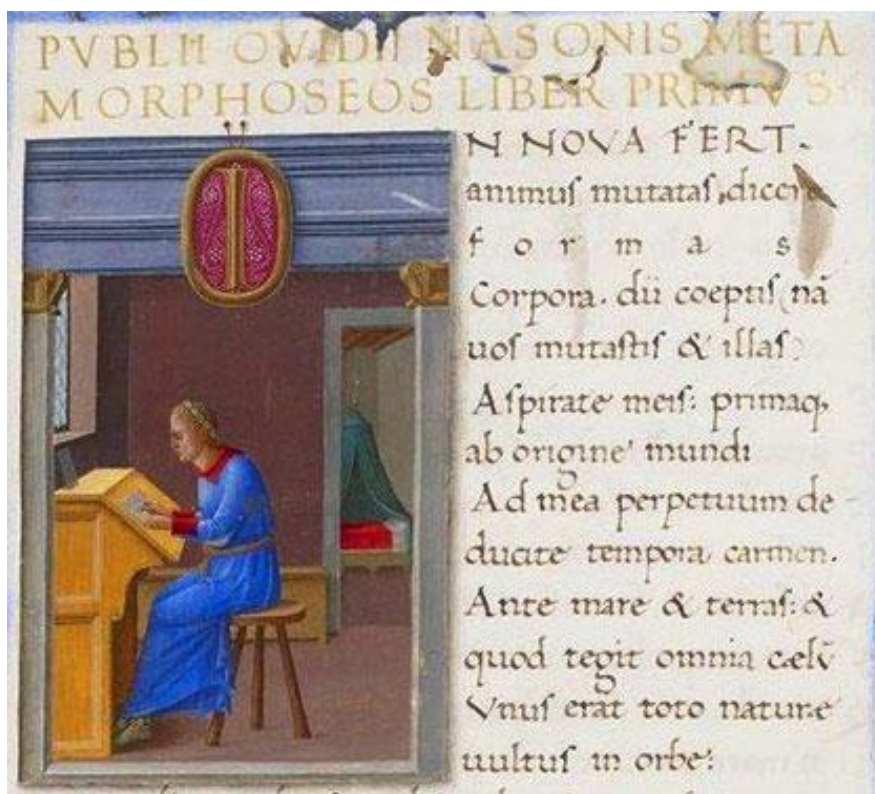 PVBLII OVIDII NASONIS META
MORPHOSEOS LIBER PRIMVS
I
N NOVA FERT.
animuſ mutataſ dicere
formas
Corpora. dii coeptiſ nā
uoſ mutaſtiſ & illaſ:
Aſpirate meiſ: primaq,
ab origine mundi
Ad mea perpetuum de
ducite tempora carmen.
Ante mare & terraſ: &
quod tegit omnia cælū
Vnuſ erat toto naturæ
uultuſ in orbe: